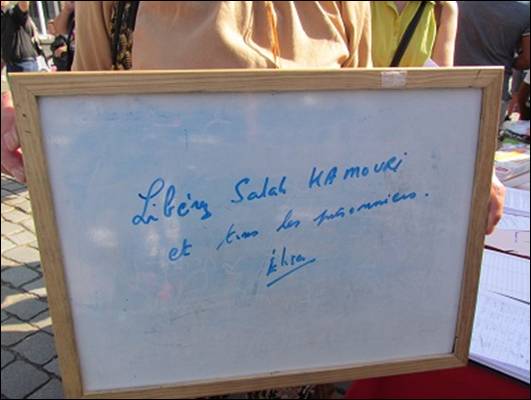 Libérez Salah HAMOURI
et tous les prisonniers.
Élisa